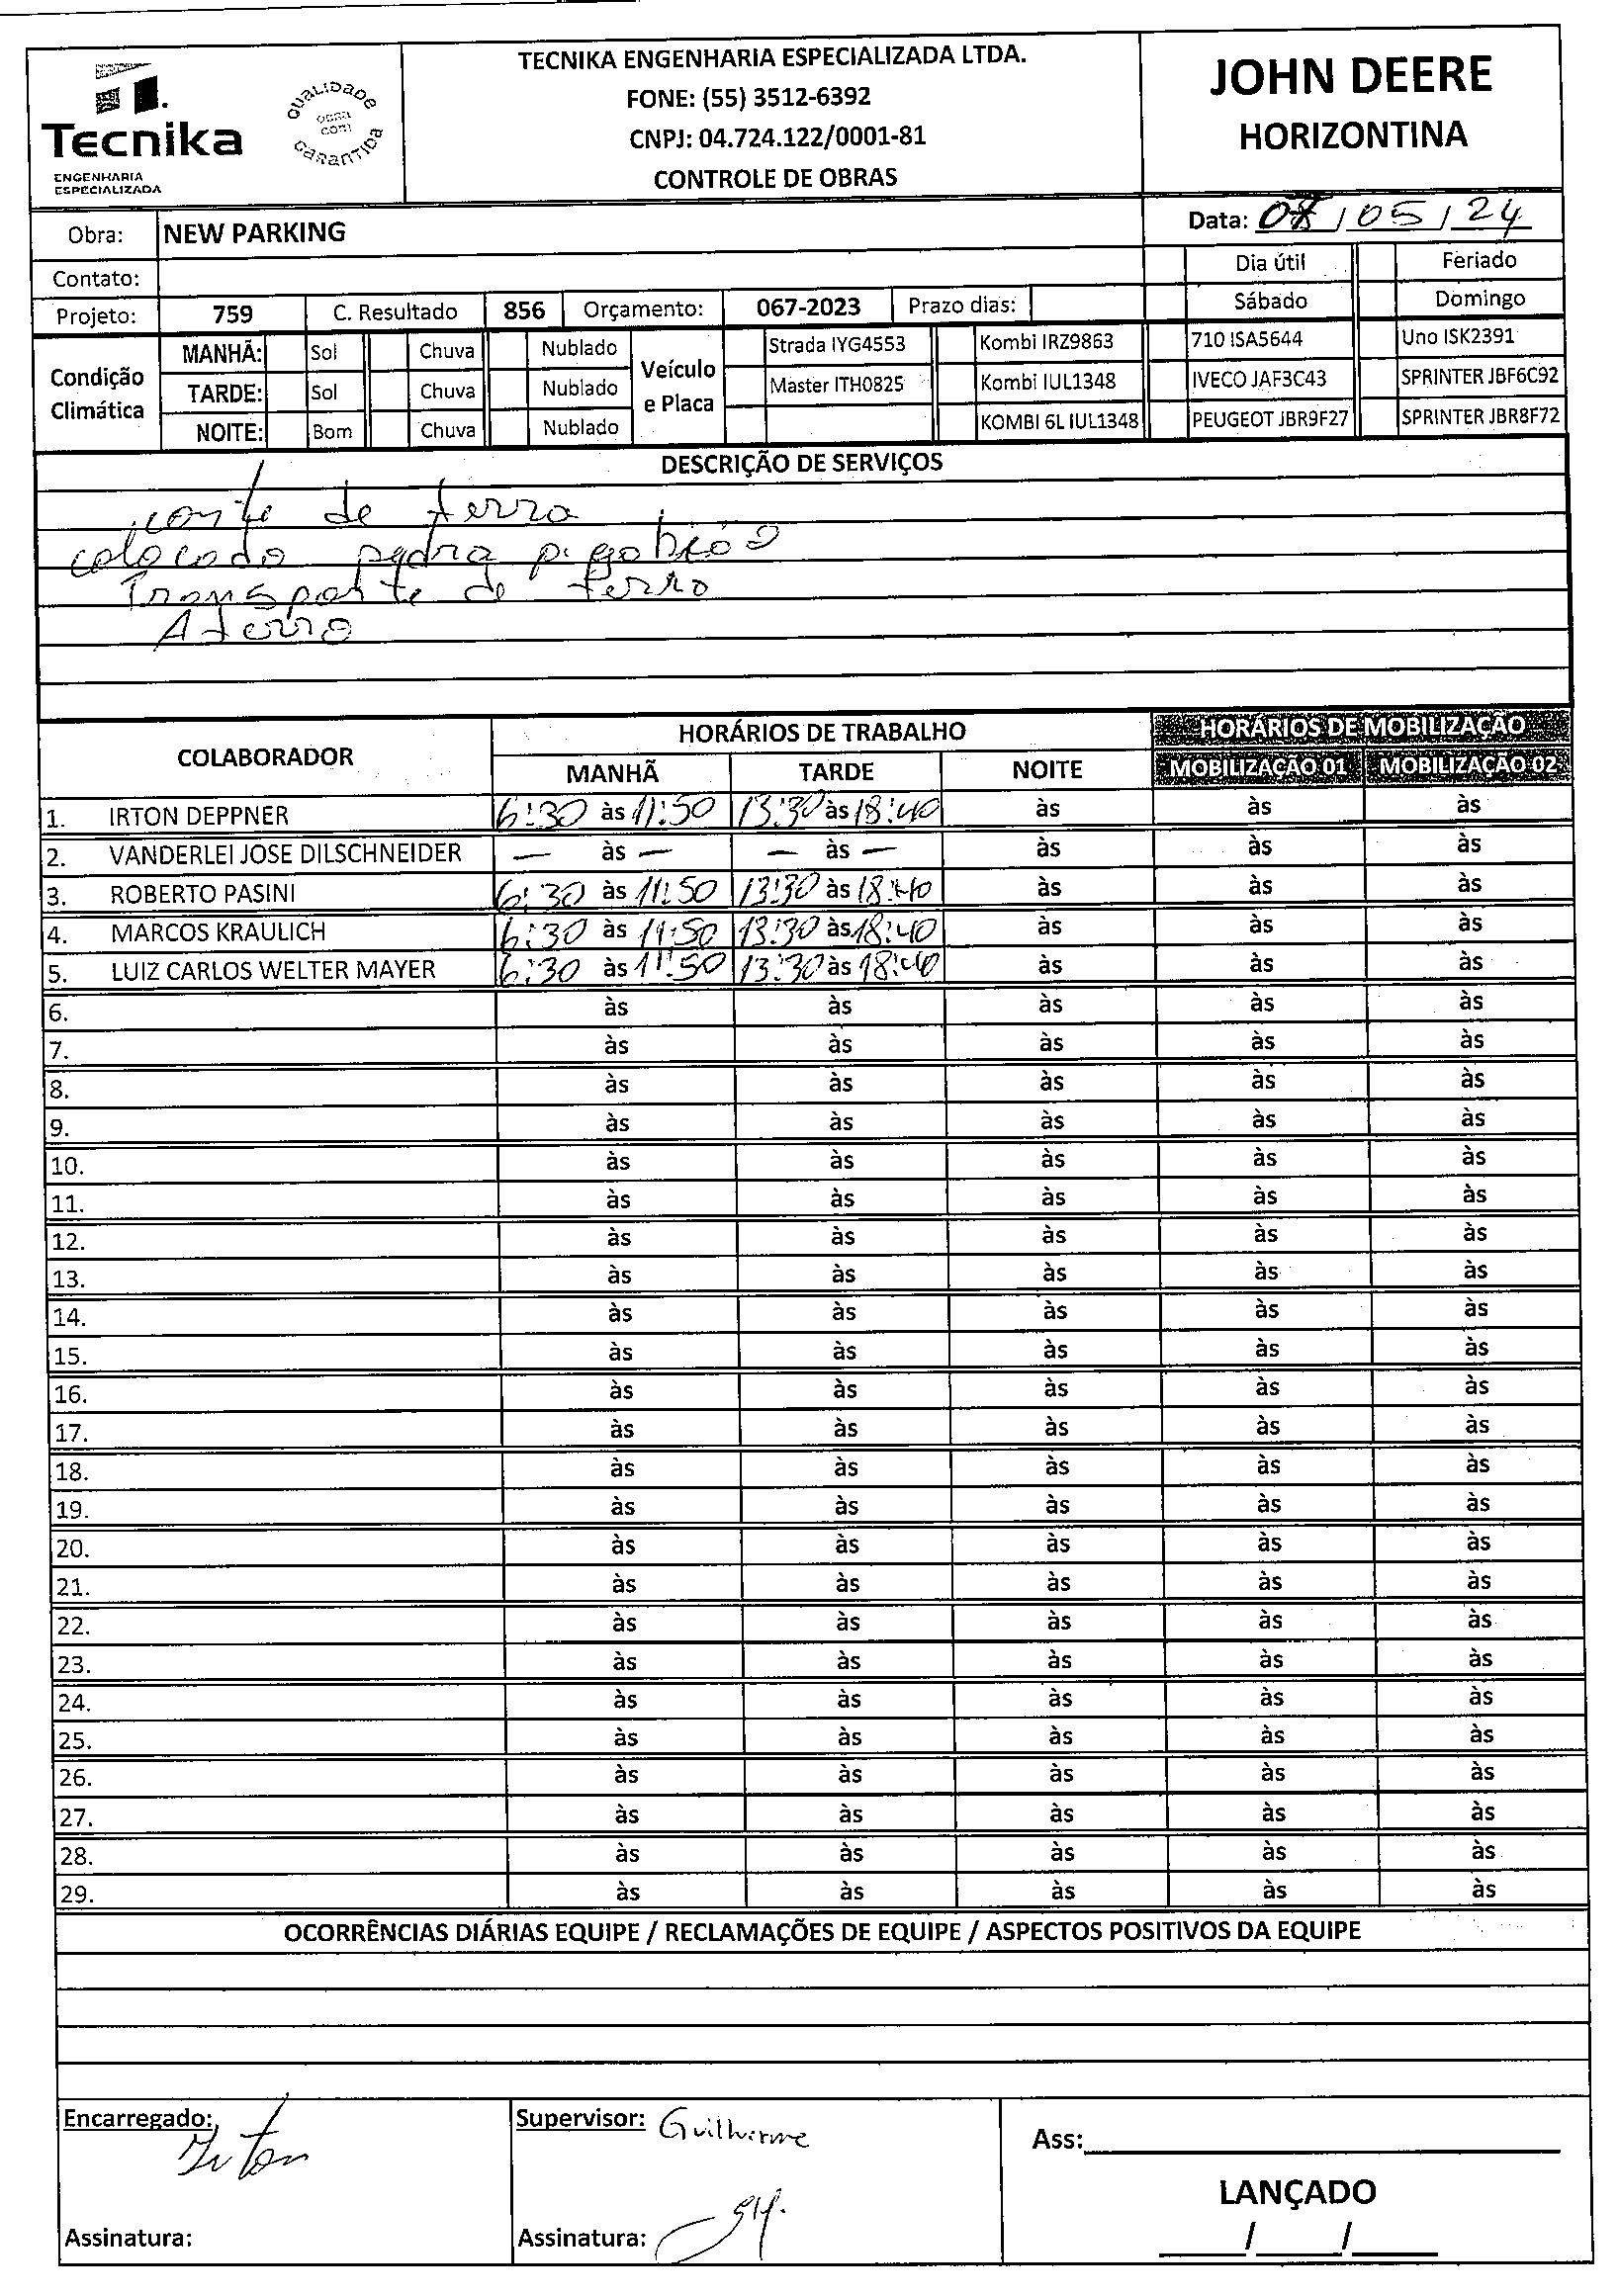 TECNIKA ENGENHARIA ESPECIALIZADA LTDA.
FONE: (55) 3512-6392
CNPJ: 04.724.122/0001-81
CONTROLE DE OBRAS
Tecnika
ENGENHARIA
ESPECIALIZADA
QUALIDADE
OBRA
COM
GARANTIDA
JOHN DEERE
HORIZONTINA
Obra: NEW PARKING
Data: /05/24
Contato:
Dia útil Feriado
Projeto: 759 C. Resultado 856 Orçamento: 067-2023 Prazo dias: Sábado Domingo
Condição Climática
MANHÃ: Sol Chuva Nublado
TARDE: Sol Chuva Nublado
NOITE: Bom Chuva Nublado
Veículo e Placa
Strada IYG4553 Kombi IRZ9863 710 ISA5644 Uno ISK2391
Master ITH0825 Kombi IUL1348 IVECO JAF3C43 SPRINTER JBF6C92
KOMBI 6L IUL1348 PEUGEOT JBR9F27 SPRINTER JBR8F72
DESCRIÇÃO DE SERVIÇOS
corte de terra
colocado pedra p. gabião
Transporte de terra
Aterro
COLABORADOR HORÁRIOS DE TRABALHO HORÁRIOS DE MOBILIZAÇÃO
MANHÃ TARDE NOITE MOBILIZAÇÃO 01 MOBILIZAÇÃO 02
1. IRTON DEPPNER 6:30 às 11:50 13:30 às 18:40 às às às
2. VANDERLEI JOSE DILSCHNEIDER — às — — às — às às às
3. ROBERTO PASINI 6:30 às 11:50 13:30 às 18:40 às às às
4. MARCOS KRAULICH 6:30 às 11:50 13:30 às 18:40 às às às
5. LUIZ CARLOS WELTER MAYER 6:30 às 11:50 13:30 às 18:40 às às às
6. às às às às às
7. às às às às às
8. às às às às às
9. às às às às às
10. às às às às às
11. às às às às às
12. às às às às às
13. às às às às às
14. às às às às às
15. às às às às às
16. às às às às às
17. às às às às às
18. às às às às às
19. às às às às às
20. às às às às às
21. às às às às às
22. às às às às às
23. às às às às às
24. às às às às às
25. às às às às às
26. às às às às às
27. às às às às às
28. às às às às às
29. às às às às às
OCORRÊNCIAS DIÁRIAS EQUIPE / RECLAMAÇÕES DE EQUIPE / ASPECTOS POSITIVOS DA EQUIPE
Encarregado: Irton
Supervisor: Guilherme
Ass:
LANÇADO
Assinatura:
Assinatura:
/ /